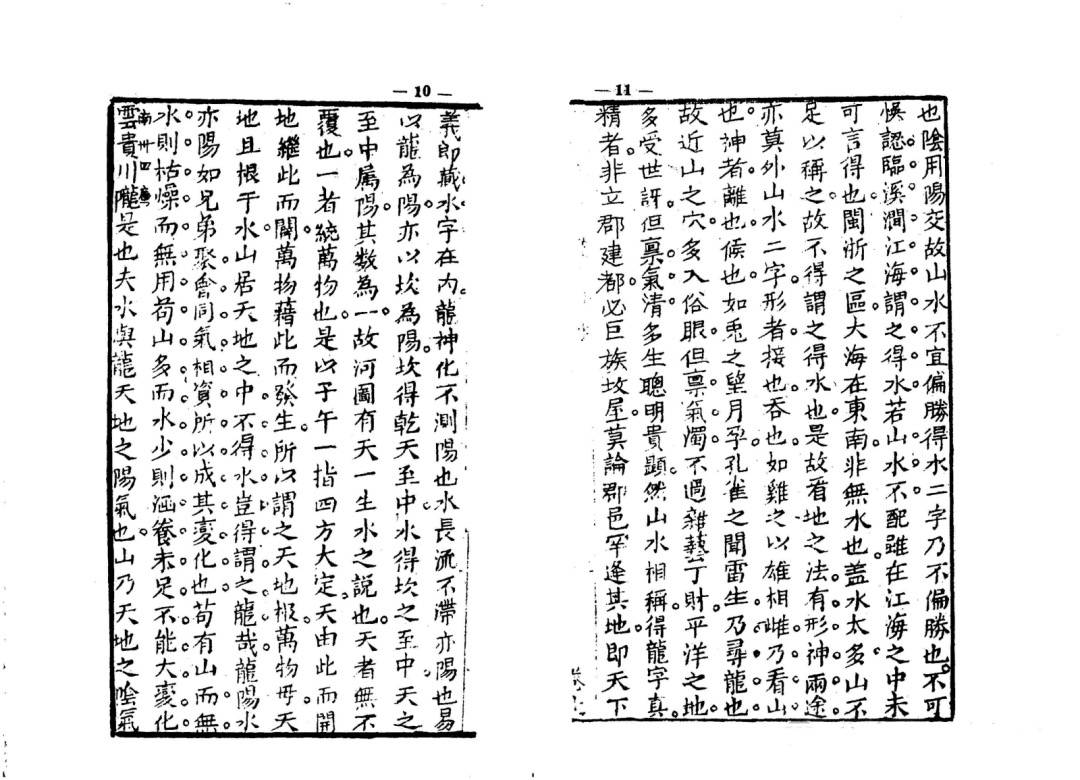 — 10 —
義即藏水字在內。龍神化不測陽也。水長流不滯亦陽也易
以龍為陽。亦以坎為陽。坎得乾天至中水得坎之至中天之
至中屬陽。其數為一。故河圖有天一生水之説也。天者無不
覆也。一者統萬物也。是以子午一指四方大定。天由此而開
地繼此而闢。萬物藉此而發生。所以謂之天地根。萬物母。天
地且根于水。山居天地之中不得水豈得謂之龍哉。龍陽水
亦陽。如兄弟聚會。同氣相資。所以成其變化也。苟有山而無
水。則枯燥而無用。苟山多而水少。則涵養未足。不能大變化
雲貴川隴是也夫水與龍天地之陽氣也。山乃天地之陰氣
南卅四
— 11 —
也。陰用陽交。故山水不宜偏勝。得水二字乃不偏勝也。不可
悞認臨溪澗江海。謂之得水。若山水不配。雖在江海之中未
可言得也。閩浙之區。大海在東南。非無水也。盖水太多山不
足以稱之。故不得謂之得水也。是故看地之法。有形神兩途
亦莫外山水二字。形者接也。吞也。如雞之以雄相雌。乃看山
也。神者離也。候也。如兎之望月孕。孔雀之聞雷生。乃尋龍也
故近山之穴。多入俗眼。但禀氣濁。不過雜藝丁財。平洋之地
多受世訝。但禀氣清。多生聰明貴顕。然山水相稱。得龍字真。
精者。非立郡建都。必巨族坟屋。莫論郡邑。罕逢其地。即天下